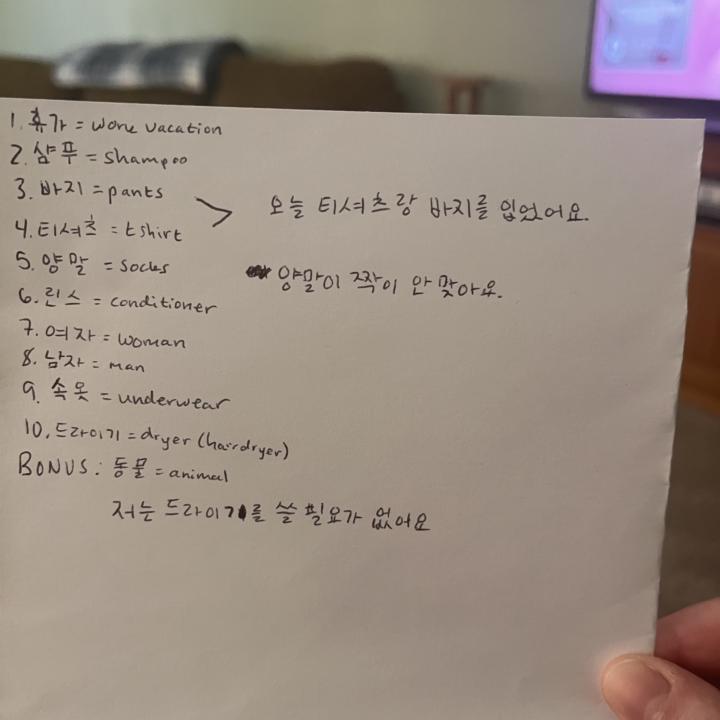 1. 휴가 = work vacation
2. 샴푸 = shampoo
3. 바지 = pants
오늘 티셔츠랑 바지를 입었어요.
4. 티셔츠 = tshirt
5. 양말 = socks
양말이 짝이 안 맞아요.
6. 린스 = conditioner
7. 여자 = woman
8. 남자 = man
9. 속옷 = underwear
10. 드라이기 = dryer (hairdryer)
BONUS: 동물 = animal
저는 드라이기를 쓸 필요가 없어요